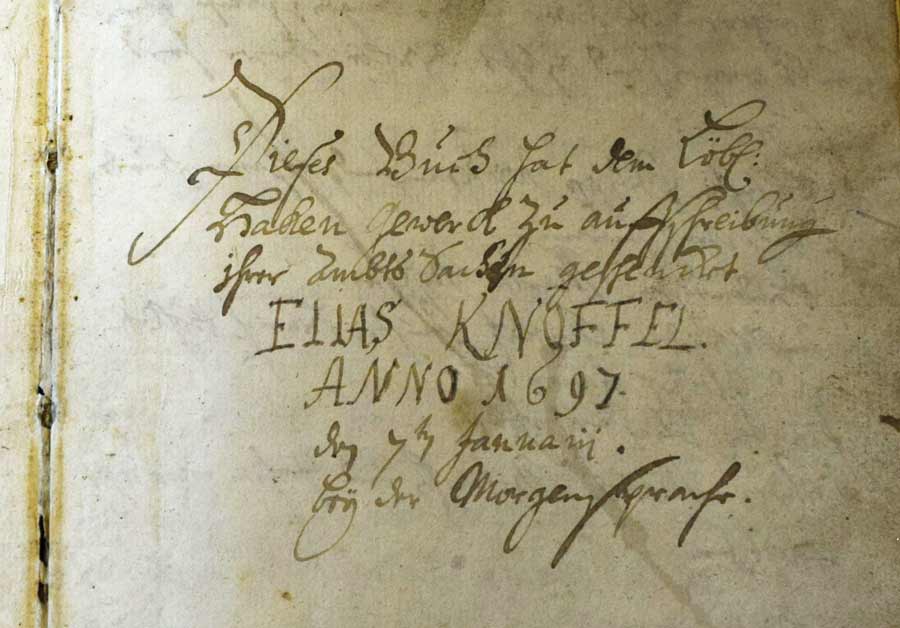 Dieses Buch hat dem Löbl:
Haken Gewerck zu auffschreibung
ihrer Ambts Sachen geschencket
ELIAS KNÖFFEL.
ANNO 1697.
den 7tn Januarij.
bey der Morgensprache.